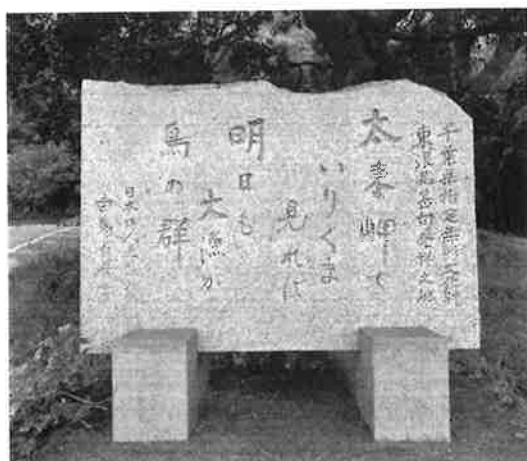 千葉県指定無形文化財
東浪見甚句発祥之地
太東岬で
いりくま
見れば
明日も
大漁か
鳥の群
日本